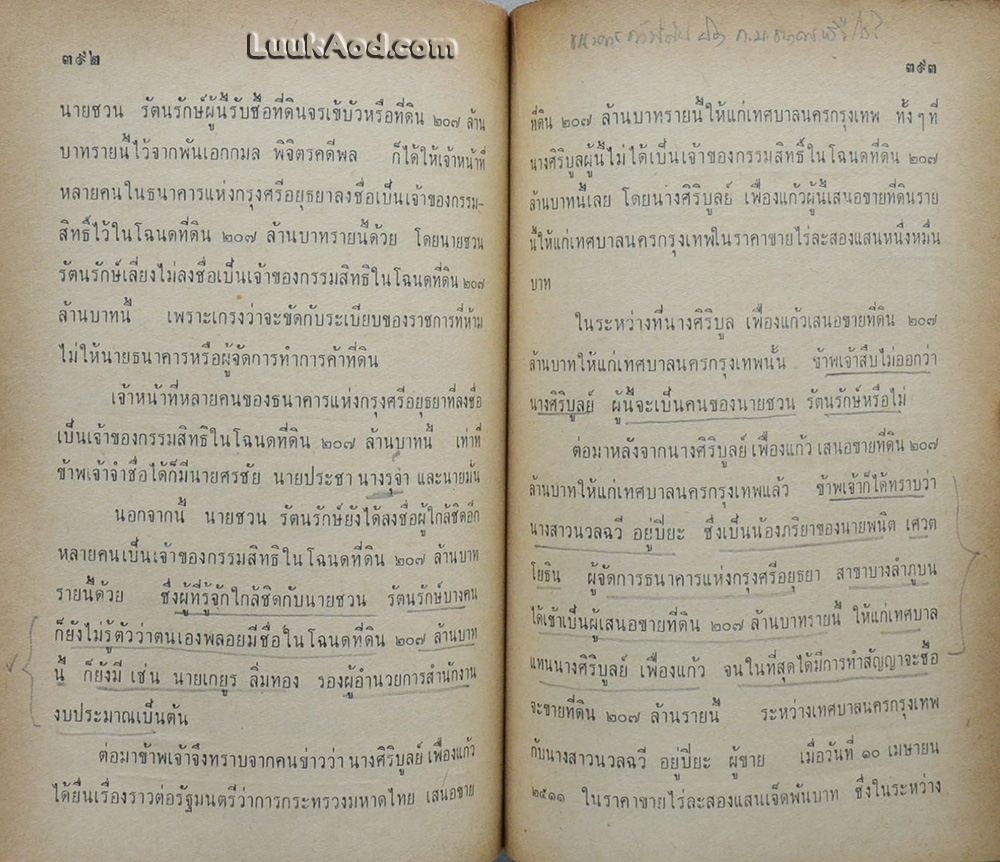 LuukAod.com
๓๙๒
นายชวน รัตนรักษ์ผู้นี้รับซื้อที่ดินจรเข้บัวหรือที่ดิน ๒๐๗ ล้าน
บาทรายนี้ไว้จากพันเอกกมล พิจิตรคดีพล ก็ได้ให้เจ้าหน้าที่
หลายคนในธนาคารแห่งกรุงศรีอยุธยาลงชื่อเป็นเจ้าของกรรม-
สิทธิ์ไว้ในโฉนดที่ดิน ๒๐๗ ล้านบาทรายนี้ด้วย โดยนายชวน
รัตนรักษ์เลี่ยงไม่ลงชื่อเป็นเจ้าของกรรมสิทธิในโฉนดที่ดิน ๒๐๗
ล้านบาทนี้ เพราะเกรงว่าจะขัดกับระเบียบของราชการที่ห้าม
ไม่ให้นายธนาคารหรือผู้จัดการทำการค้าที่ดิน
เจ้าหน้าที่หลายคนของธนาคารแห่งกรุงศรีอยุธยาที่ลงชื่อ
เป็นเจ้าของกรรมสิทธิในโฉนดที่ดิน ๒๐๗ ล้านบาทนี้ เท่าที่
ข้าพเจ้าจำชื่อได้ก็มีนายศรชัย นายประชา นางรุจำ และนายมั่น
นอกจากนี้ นายชวน รัตนรักษ์ยังได้ลงชื่อผู้ใกล้ชิดอีก
หลายคนเป็นเจ้าของกรรมสิทธิในโฉนดที่ดิน ๒๐๗ ล้านบาท
รายนี้ด้วย ซึ่งผู้ที่รู้จักใกล้ชิดกับนายชวน รัตนรักษ์บางคน
ก็ยังไม่รู้ตัวว่าตนเองพลอยมีชื่อในโฉนดที่ดิน ๒๐๗ ล้านบาท
นี้ ก็ยังมี เช่น นายเกยูร ลิ่มทอง รองผู้อำนวยการสำนักงาน
งบประมาณเป็นต้น
ต่อมาข้าพเจ้าจึงทราบจากคนข่าวว่า นางศิริบูลย์ เฟื่องแก้ว
ได้ยื่นเรื่องราวต่อรัฐมนตรีว่าการกระทรวงมหาดไทย เสนอขาย
๓๙๓
ที่ดิน ๒๐๗ ล้านบาทรายนี้ให้แก่เทศบาลนครกรุงเทพ ทั้งๆ ที่
นางศิริบูลผู้นี้ไม่ได้เป็นเจ้าของกรรมสิทธิ์ในโฉนดที่ดิน ๒๐๗
ล้านบาทนี้เลย โดยนางศิริบูลย์ เฟื่องแก้วผู้นี้เสนอขายที่ดินราย
นี้ให้แก่เทศบาลนครกรุงเทพในราคาขายไร่ละสองแสนหนึ่งหมื่น
บาท
ในระหว่างที่นางศิริบูล เฟื่องแก้วเสนอขายที่ดิน ๒๐๗
ล้านบาทให้แก่เทศบาลนครกรุงเทพนั้น ข้าพเจ้าสืบไม่ออกว่า
นางศิริบูลย์ ผู้นี้จะเป็นคนของนายชวน รัตนรักษ์หรือไม่
ต่อมาหลังจากนางศิริบูลย์ เฟื่องแก้ว เสนอขายที่ดิน ๒๐๗
ล้านบาทให้แก่เทศบาลนครกรุงเทพแล้ว ข้าพเจ้าก็ได้ทราบว่า
นางสาวนวลฉวี อยู่ปิยะ ซึ่งเป็นน้องภริยาของนายพนิต เศวต
โยธิน ผู้จัดการธนาคารแห่งกรุงศรีอยุธยา สาขาบางลำภูบน
ได้เข้าเป็นผู้เสนอขายที่ดิน ๒๐๗ ล้านบาทรายนี้ ให้แก่เทศบาล
แทนนางศิริบูลย์ เฟื่องแก้ว จนในที่สุดได้มีการทำสัญญาจะซื้อ
จะขายที่ดิน ๒๐๗ ล้านรายนี้ ระหว่างเทศบาลนครกรุงเทพ
กับนางสาวนวลฉวี อยู่ปิยะ ผู้ขาย เมื่อวันที่ ๑๐ เมษายน
๒๕๑๑ ในราคาขายไร่ละสองแสนเจ็ดพันบาท ซึ่งในระหว่าง